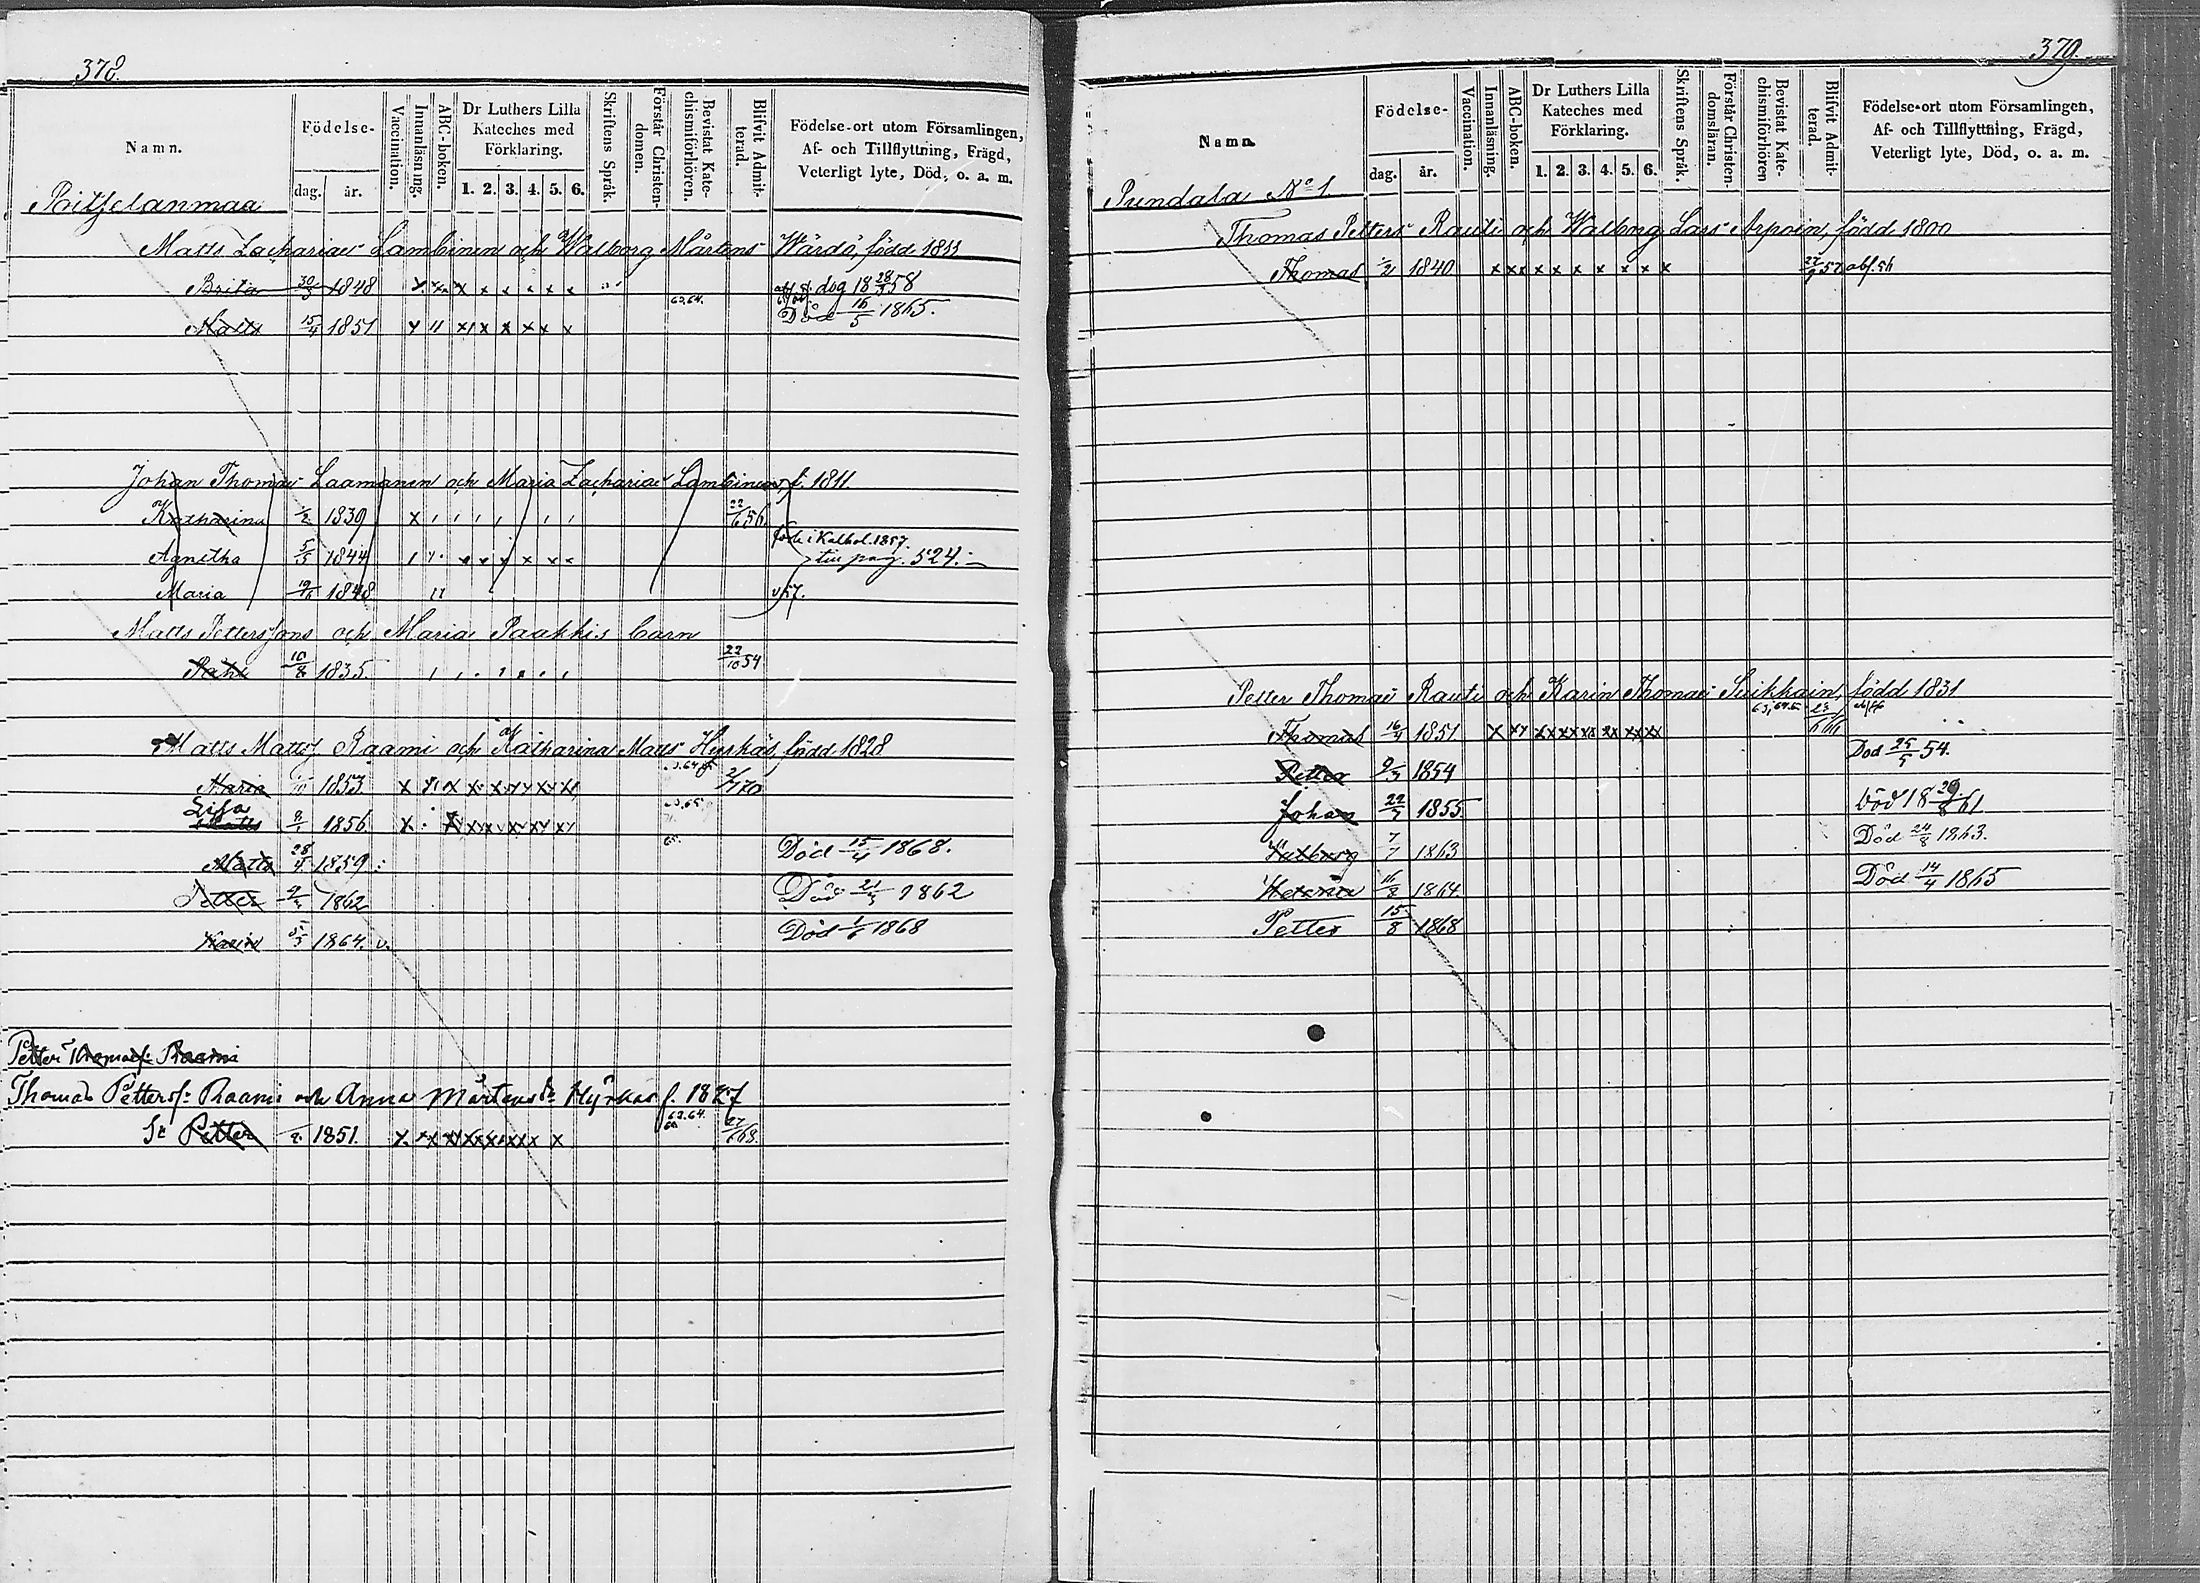 378.
Namn.
Födelse-
dag. år.
Vaccination.
Innanläsning.
ABC-boken.
Dr Luthers Lilla Kateches med Förklaring.
1. 2. 3. 4. 5. 6.
Skriftens Språk.
Förstår Christendomen.
Bevistat Katechismiförhören.
Blifvit Admitterad.
Födelse-ort utom Församlingen, Af- och Tillflyttning, Frägd, Veterligt lyte, Död, o. a. m.
Matts Zacharias Lambinen och Walborg Mårtens Wärdö, född 1811
Brita 30/3 1848 dog 18 28/3 58
Matts 15/4 1851 63.64. Död 16/5 1865.
Johan Thomas Laamanen och Maria Zacharias Lambinen, f. 1811
Katharina 1/2 1839 22/6 56.
Agnetha 5/5 1844 till pag. 524.
Maria 19/6 1848
Matts Petterssons och Maria Paakkis barn
10/8 1835. 22/10 54
Matts Matts Raami och Katharina Matts Hyrkäs, född 1828
Maria 1853. 2/7 70
Lisa
Matts 8/1 1856
Matts 28/4 1859 Död 15/4 1868.
Petter 1862 Död 21/5 1862
Karin 5/5 1864. v. Död 1/6 1868
Petter Thomass: Raami
Thomas Petterss: Raami och Anna Mårtens dr Hyrkäs f. 1827
Sr Petter 1851. 63.64.
379.
Namn.
Födelse-
dag. år.
Vaccination.
Innanläsning.
ABC-boken.
Dr Luthers Lilla Kateches med Förklaring.
1. 2. 3. 4. 5. 6.
Skriftens Språk.
Förstår Christendomsläran.
Bevistat Katechismiförhören
Blifvit Admitterad.
Födelse-ort utom Församlingen, Af- och Tillflyttning, Frägd, Veterligt lyte, Död, o. a. m.
Pundala No 1.
Thomas Petters Rauti och Walborg Lars Arpoin, född 1800
Thomas 1/2 1840
Petter Thomas Rauti och Karin Thomas Suikkain, född 1831
Thomas 16/4 1851
Petter 9/3 1854 Död 25/5 54.
Johan 22/7 1855 död 18 29/8 61
Walborg 7/7 1863 Död 24/8 1863.
16/8 1864. Död 14/4 1865
Petter 15/8 1868